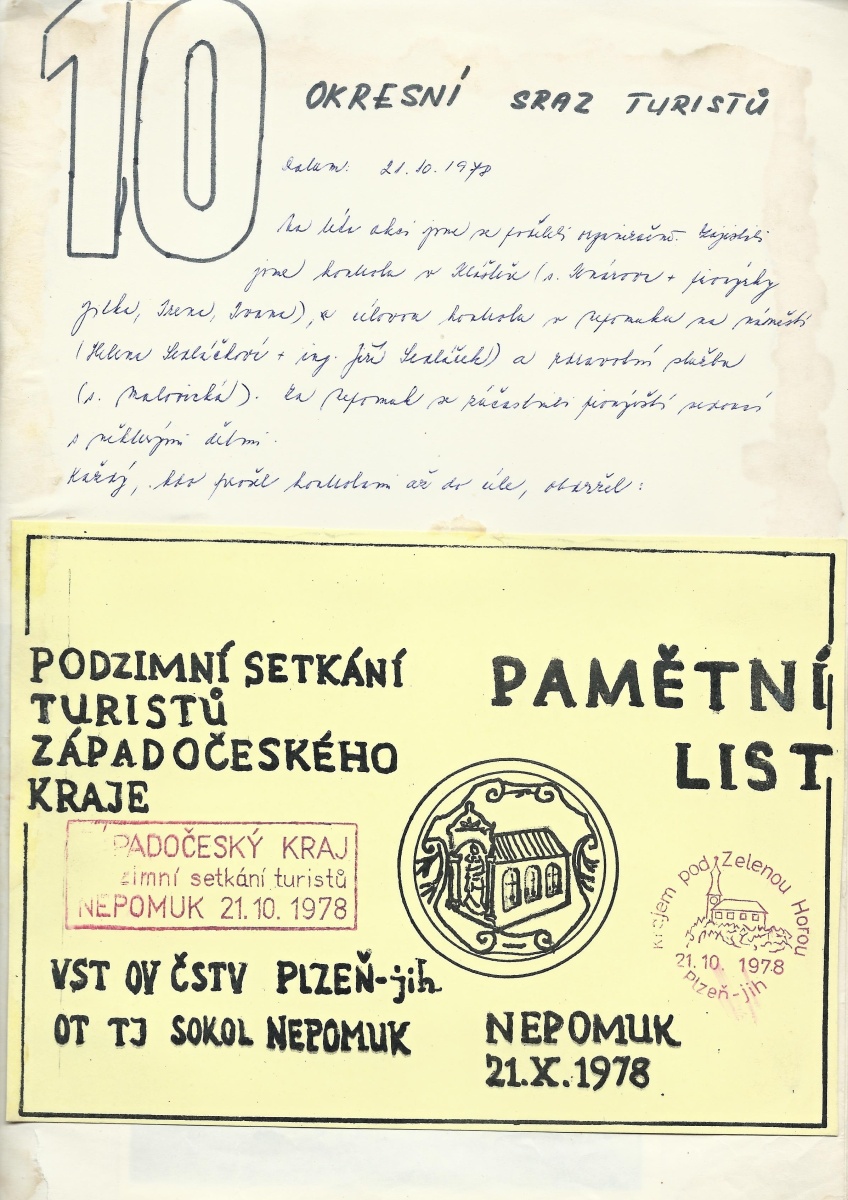 10
OKRESNÍ SRAZ TURISTŮ
Datum: 21.10.1978
Na této akci jsme se podíleli organizačně. Zajistili
jsme kontrolu v (s. + pionýrky
Jitka, Irena, Ivana), cílovou kontrolu v Nepomuku na náměstí
(Helena Sedláčková + ing. Jiří Sedláček) a zdravotní službu
(s. Malovická). Za Nepomuk se zúčastnili pionýrští vedoucí
s některými dětmi.
Každý, kdo prošel kontrolami až do cíle, obdržel:
PODZIMNÍ SETKÁNÍ
TURISTŮ
ZÁPADOČESKÉHO
KRAJE
PAMĚTNÍ
LIST
PADOČESKÝ KRAJ
zimní setkání turistů
NEPOMUK 21.10.1978
Krajem pod Zelenou Horou
21.10. 1978
Plzeň-jih
VST OV ČSTV PLZEŇ-jih
OT TJ SOKOL NEPOMUK
NEPOMUK
21.X.1978